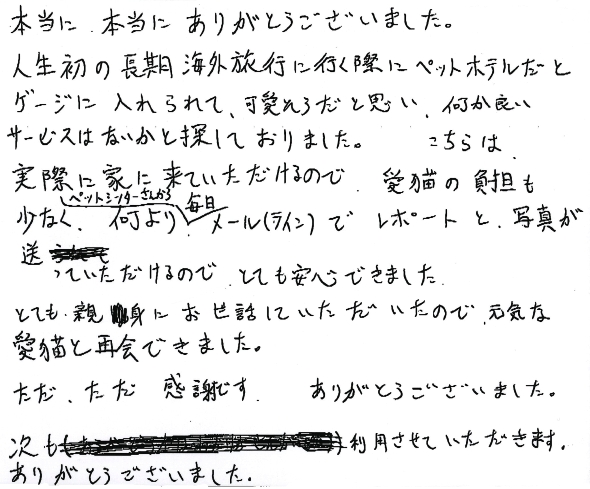 本当に、本当に ありがとうございました。
人生初の長期海外旅行に行く際にペットホテルだと
ゲージに入れられて、可愛そうだと思い、何か良い
サービスはないかと探しておりました。 こちらは、
実際に家に来ていただけるので、愛猫の負担も
ペットシッターさんから 毎日
少なく、何より、メール(ライン)で レポートと、写真が
送
っていただけるので、とても安心できました。
とても親身にお世話していただいたので、元気な
愛猫と再会できました。
ただ、ただ 感謝です。 ありがとうございました。
次も 利用させていただきます。
ありがとうございました。